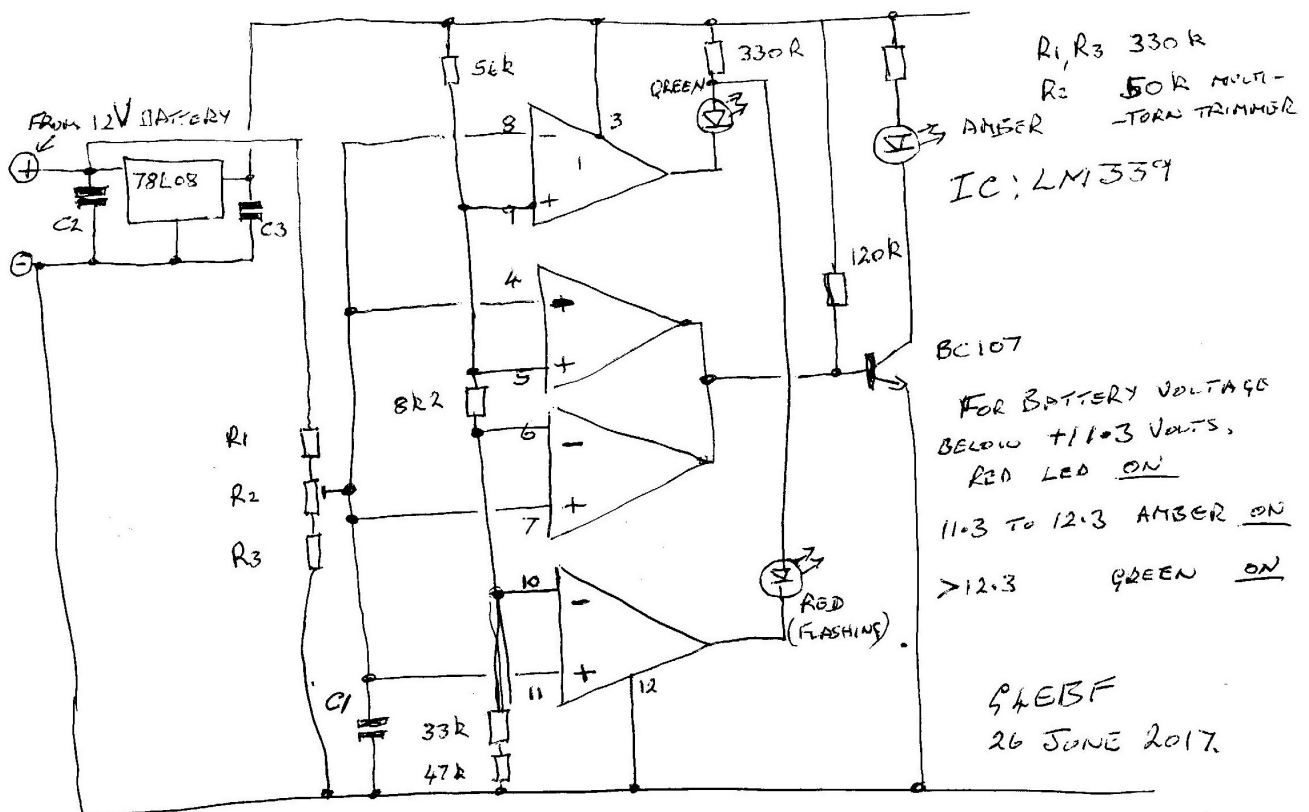 FROM 12V BATTERY
+
-
78L08
C2
C3
56k
330R
GREEN
8
-
1
3
9
+
4
+
5
+
8k2
6
-
7
+
10
-
11
+
12
R1
R2
R3
C1
33k
47k
RED
(FLASHING)
120k
AMBER
BC107
R1, R3 330k
R2 50k MULTI-
-TURN TRIMMER
IC: LM339
FOR BATTERY VOLTAGE
BELOW +11.3 VOLTS,
RED LED ON
11.3 TO 12.3 AMBER ON
>12.3 GREEN ON
G4EBF
26 JUNE 2017.